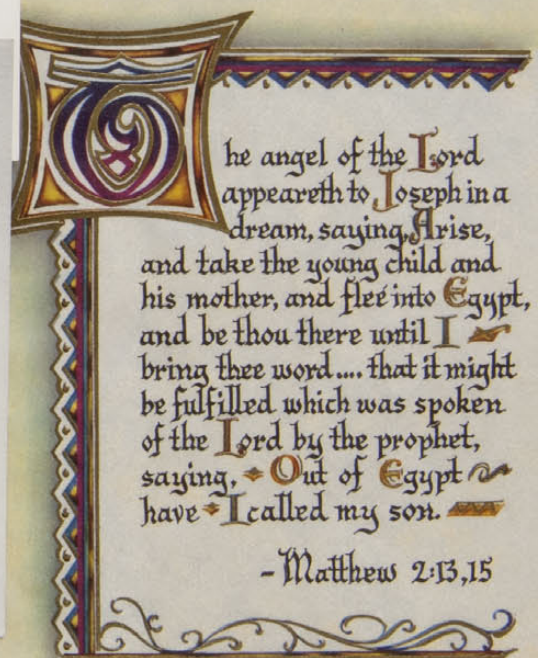 The angel of the Lord
appeareth to Joseph in a
dream, saying, Arise,
and take the young child and
his mother, and flee into Egypt,
and be thou there until I
bring thee word.... that it might
be fulfilled which was spoken
of the Lord by the prophet,
saying, Out of Egypt
have I called my son.
-Matthew 2:13,15